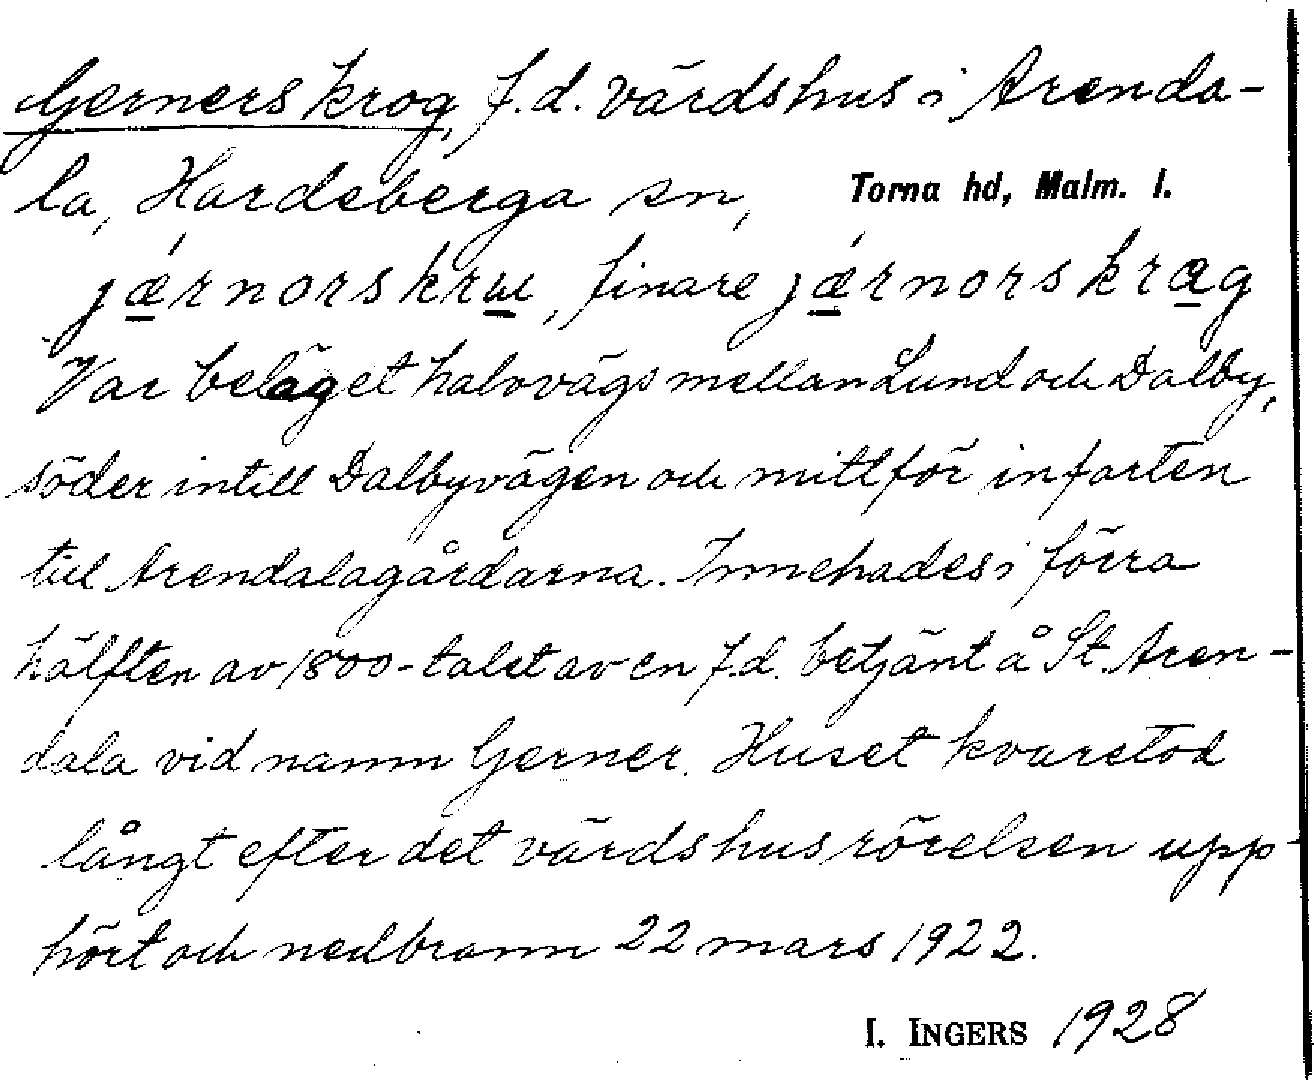 Gerners krog, f.d. värdshus i Arenda-
la, Hardeberga sn, Torna hd, Malm. l.
jǽrnors kru, finare jǽrnors kræg
Var beläget halvvägs mellan Lund och Dalby,
söder intill Dalbyvägen och mittför infarten
till Arendalagårdarna. Innehades i förra
hälften av 1800-talet av en f.d. betjänt å St. Aren-
dala vid namn Gerner. Huset kvarstod
långt efter det värdshusrörelsen upp-
hört och nedbrann 22 mars 1922.
I. INGERS 1928